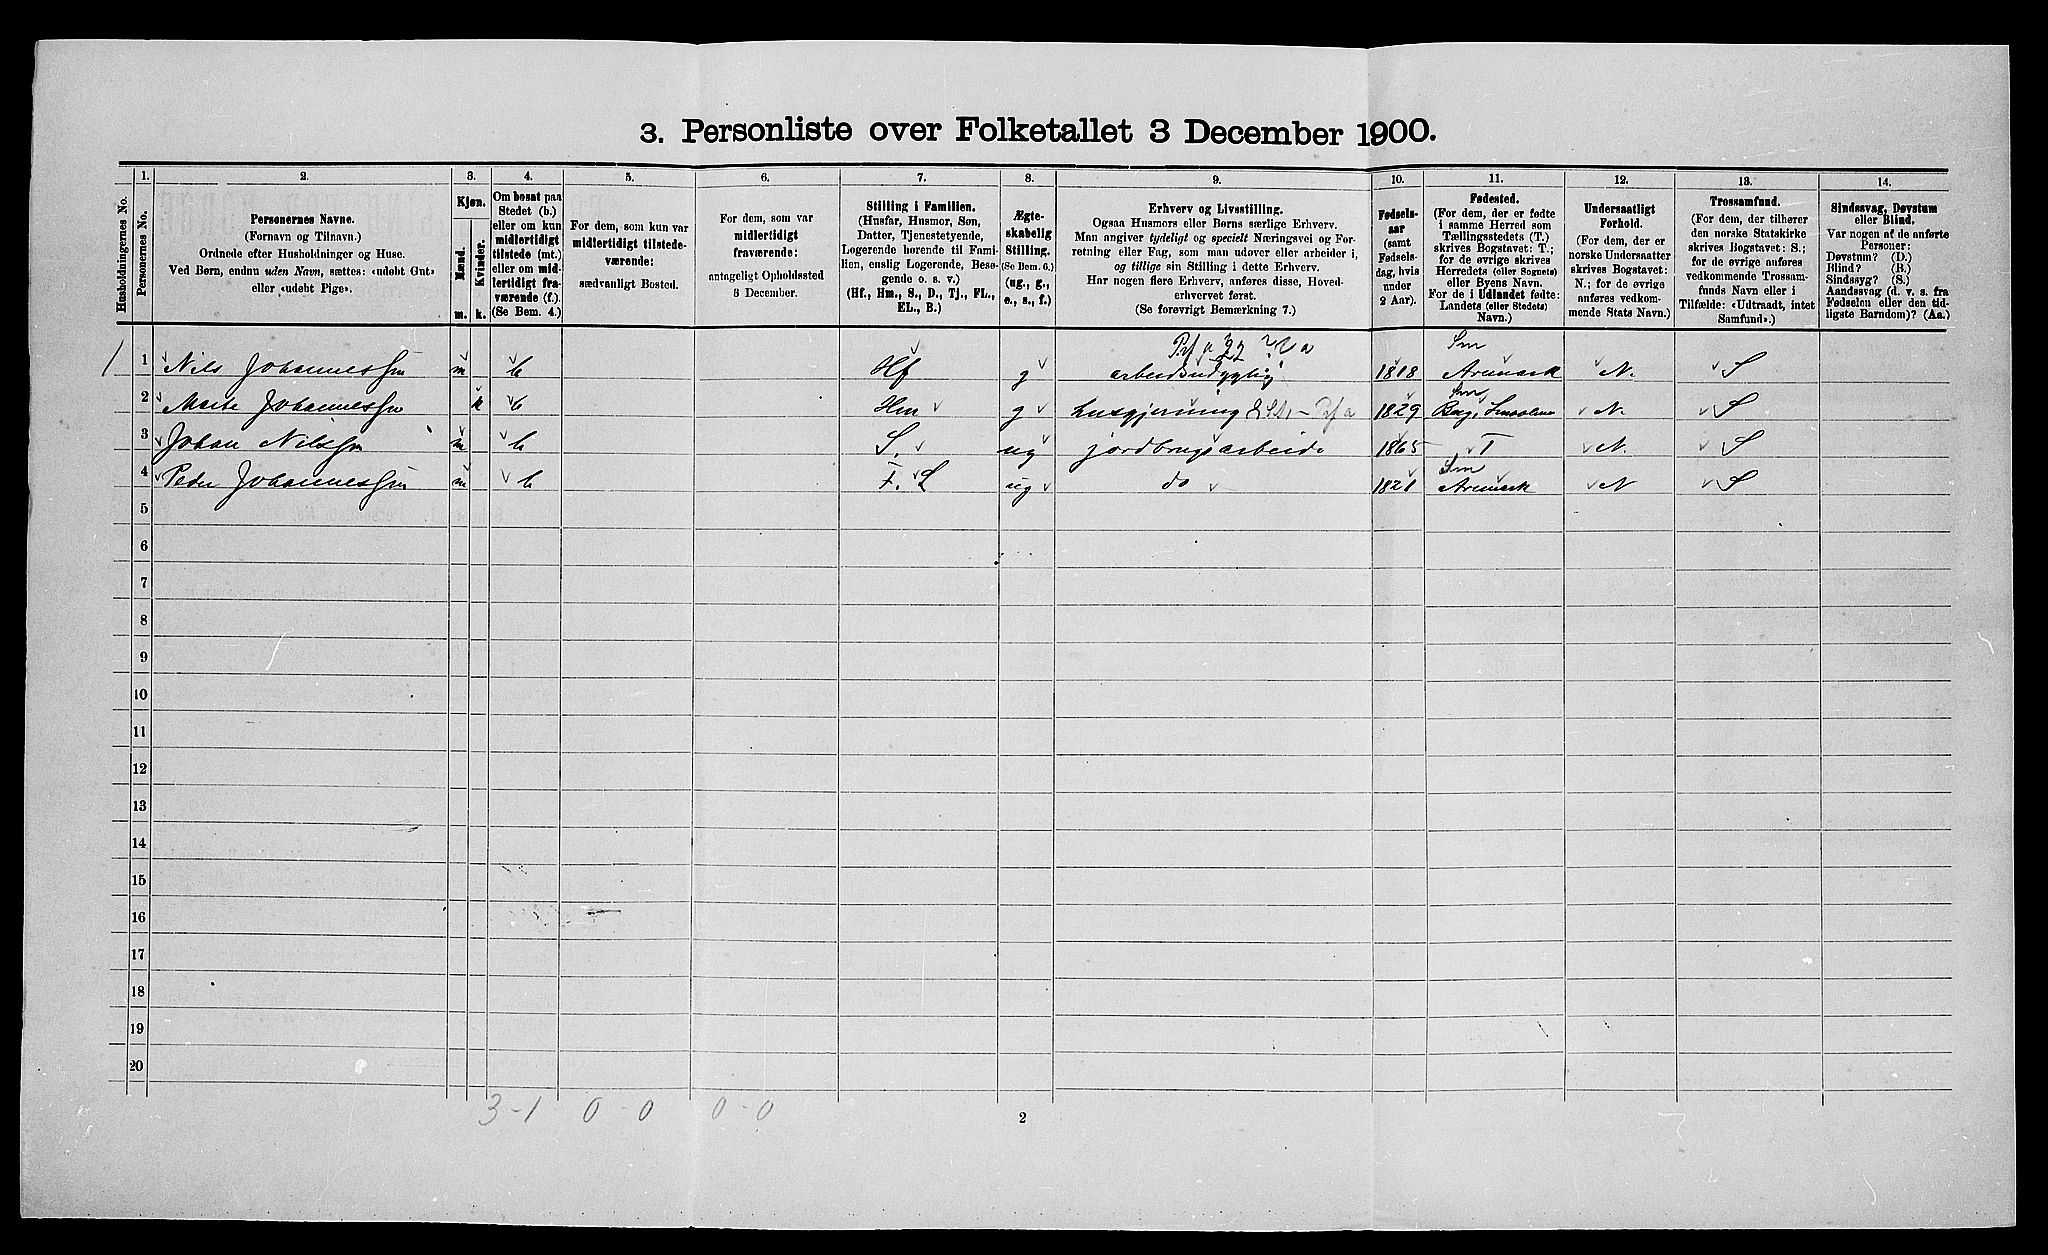 3. Personliste over Folketallet 3 December 1900.
Husholdningernes No.
1.
Personernes No.
2.
Personernes Navne.
(Fornavn og Tilnavn.)
Ordnede efter Husholdninger og Huse.
Ved Børn, endnu uden Navn, sættes: «udøbt Gut»
eller «udøbt Pige».
3.
Kjøn.
Mænd.
Kvinder.
m. k.
4.
Om bosat paa
Stedet (b.)
eller om kun
midlertidigt
tilstede (mt.)
eller om mid-
lertidigt fra-
værende (f.)
(Se Bem. 4.)
5.
For dem, som kun var
midlertidigt tilstede-
værende:
sædvanligt Bosted.
6.
For dem, som var
midlertidigt
fraværende:
antageligt Opholdssted
3 December.
7.
Stilling i Familien.
(Husfar, Husmor, Søn,
Datter, Tjenestetyende,
Logerende hørende til Fami-
lien, enslig Logerende, Besø-
gende o. s. v.)
(Hf., Hm., S., D., Tj., FL.,
EL., B.)
8.
Ægte-
skabelig
Stilling.
(Se Bem. 6.)
(ug., g.,
e., s., f.)
9.
Erhverv og Livsstilling.
Ogsaa Husmors eller Børns særlige Erhverv.
Man angiver tydeligt og specielt Næringsvei og For-
retning eller Fag, som man udøver eller arbeider i,
og tillige sin Stilling i dette Erhverv.
Har nogen flere Erhverv, anføres disse, Hoved-
erhvervet først.
(Se forøvrigt Bemærkning 7.)
10.
Fødsels-
aar
(samt
Fødsels-
dag, hvis
under
2 Aar).
11.
Fødested.
(For dem, der er fødte
i samme Herred som
Tællingsstedets (T.)
skrives Bogstavet: T.;
for de øvrige skrives
Herredets (eller Sognets)
eller Byens Navn.
For de i Udlandet fødte:
Landets (eller Stedets)
Navn.)
12.
Undersaatligt
Forhold.
(For dem, der er
norske Undersaatter
skrives Bogstavet:
N.; for de øvrige
anføres vedkom-
mende Stats Navn.)
13.
Trossamfund.
(For dem, der tilhører
den norske Statskirke
skrives Bogstavet: S.;
for de øvrige anføres
vedkommende Trossam-
funds Navn eller i
Tilfælde: «Udtraadt, intet
Samfund».)
14.
Sindssvag, Døvstum
eller Blind.
Var nogen af de anførte
Personer:
Døvstum? (D.)
Blind? (B.)
Sindssyg? (S.)
Aandssvag (d. v. s. fra
Fødselen eller den tid-
ligste Barndom)? (Aa.)
Sm
1 1 Nils Johannessen m b Hf g arbeidsudygtig 1818 Aremark N. S
Sm
2 Marte Johannessen k b Hm g husgjerning 1829 Berg, Smaalene N. S
3 Johan Nilssen m b S. ug jordbrugsarbeide 1865 T N. S
Sm
4 Peder Johannessen m b F. L ug do 1821 Aremark N S
5
6
7
8
9
10
11
12
13
14
15
16
17
18
19
20
3-1 0-0 0-0
2